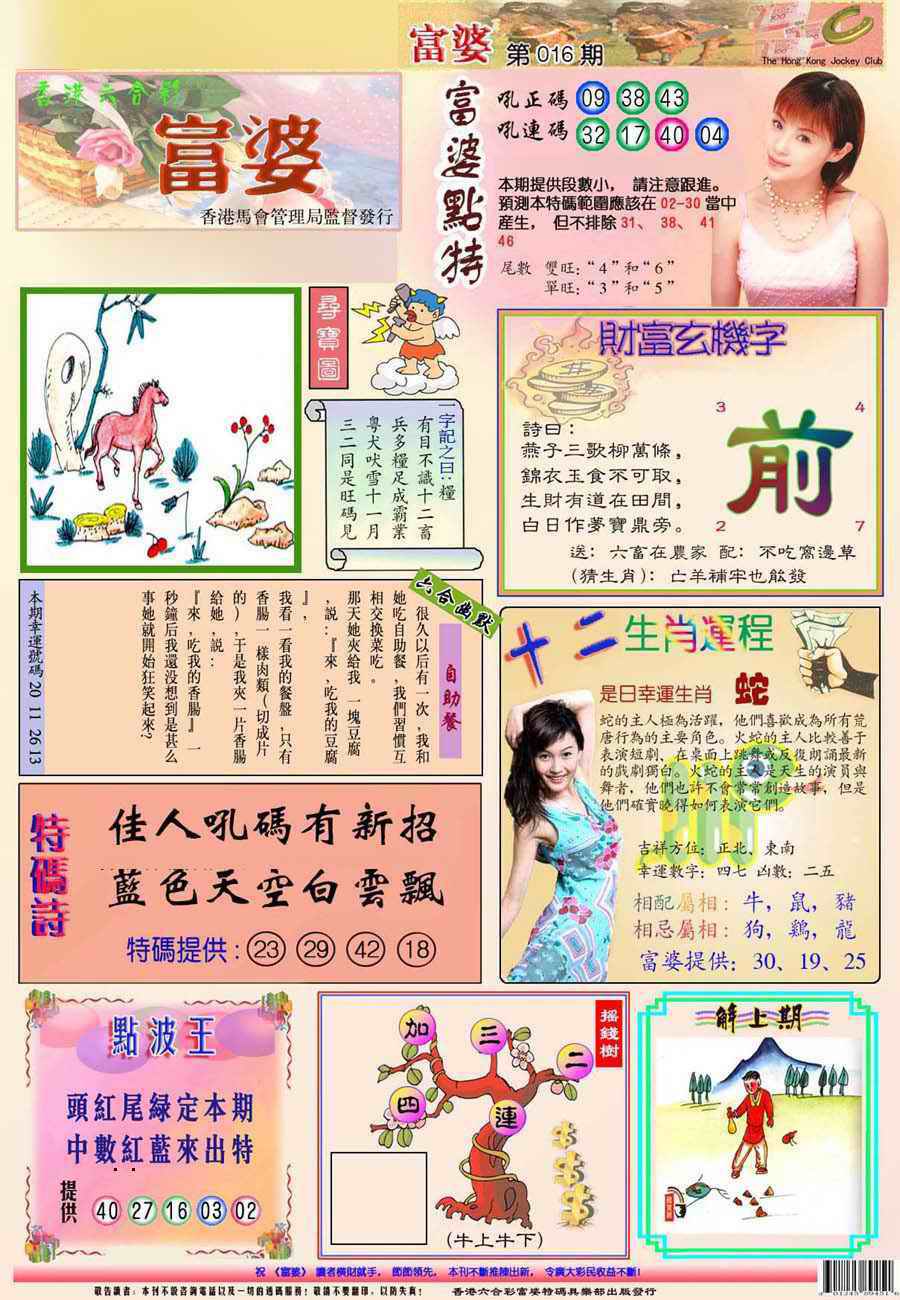 富婆 第 016 期
The Hong Kong Jockey Club
香港六合彩
富婆
香港馬會管理局監督發行
富婆點特
吼正碼 09 38 43
吼連碼 32 17 40 04
本期提供段數小， 請注意跟進。
預測本特碼範圍應該在 02-30 當中
産生， 但不排除 31、 38、 41
46
尾數 雙旺:“4”和“6”
單旺:“3”和“5”
尋寶圖
一字記之曰:糧
有目不識十二畜
兵多糧足成霸業
粵犬吠雪十一月
三二同是旺碼見
財富玄機字
3 4
前
2 7
詩曰:
燕子三歌柳萬條，
錦衣玉食不可取，
生財有道在田間，
白日作夢寶鼎旁。
送: 六畜在農家 配: 不吃窩邊草
(猜生肖): 亡羊補牢也飲發
六合幽默
自助餐
很久以后有一次,我和
她吃自助餐,我們習慣互
相交換菜吃。
那天她夾給我 一塊豆腐
,説:『來,吃我的豆腐
』,
我看一看我的餐盤,只有
香腸一 樣肉類(切成片
的),于是我夾一片香腸
給她,説:
『來,吃我的香腸』一
秒鐘后我還没想到是甚么
事她就開始狂笑起來?
本期幸運號碼 20 11 26 13
十二生肖運程
是日幸運生肖 蛇
蛇的主人極為活躍，他們喜歡成為所有荒
唐行為的主要角色。火蛇的主人比較善于
表演短劇、在桌面上跳舞或反復朗誦最新
的戲劇獨白。火蛇的主人是天生的演員與
舞者，他們也許不會常常創造故事，但是
他們確實曉得如何表演它們。
吉祥方位: 正北、東南
幸運數字: 四七 凶數: 二五
相配屬相: 牛，鼠，豬
相忌屬相: 狗，鷄，龍
富婆提供: 30、19、25
特碼詩
佳人吼碼有新招
藍色天空白雲飄
特碼提供: 23 29 42 18
點波王
頭紅尾綠定本期
中數紅藍來出特
提供 40 27 16 03 02
搖錢樹
加 三 二
四 連
(牛上牛下)
解上期
祝 《富婆》 讀者橫財就手， 節節領先， 本刊不斷推陳出新， 令廣大彩民收益不斷!
敬告讀者: 本刊不設咨詢電話以及一切的透碼服務! 敬請不要翻印，以防失真!
香港六合彩富婆特碼具樂部出版發行